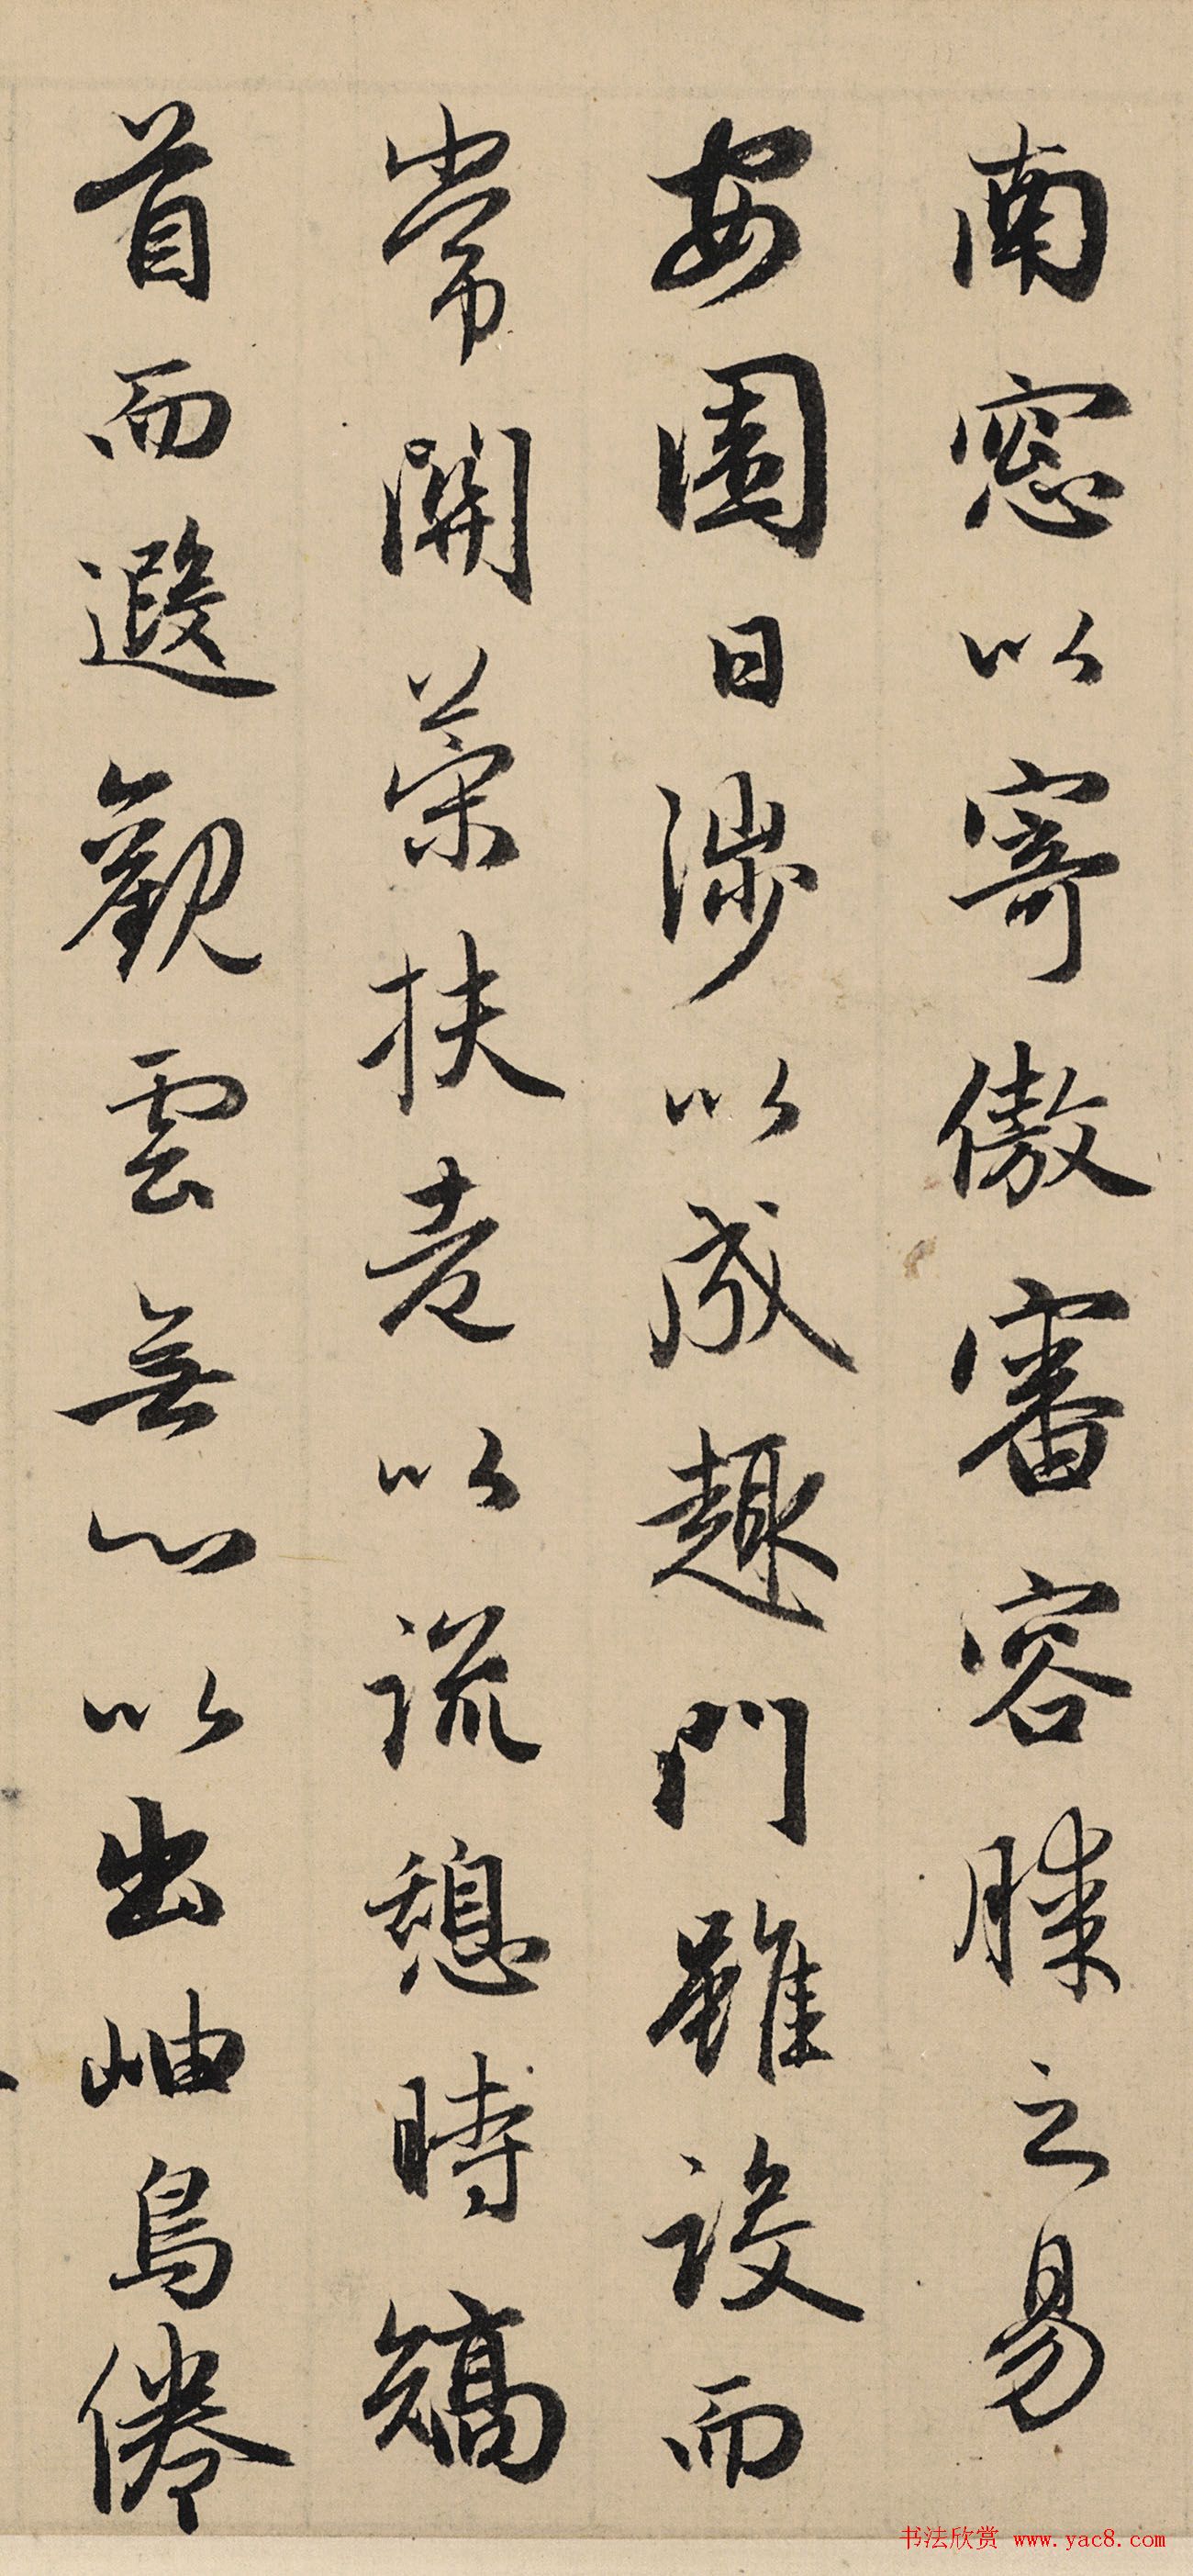 南窓以寄傲審容膝之易
安園日涉以成趣門雖設而
常關策扶老以流憩時矯
首而遐觀雲無心以出岫鳥倦
书法欣赏 www.yac8.com